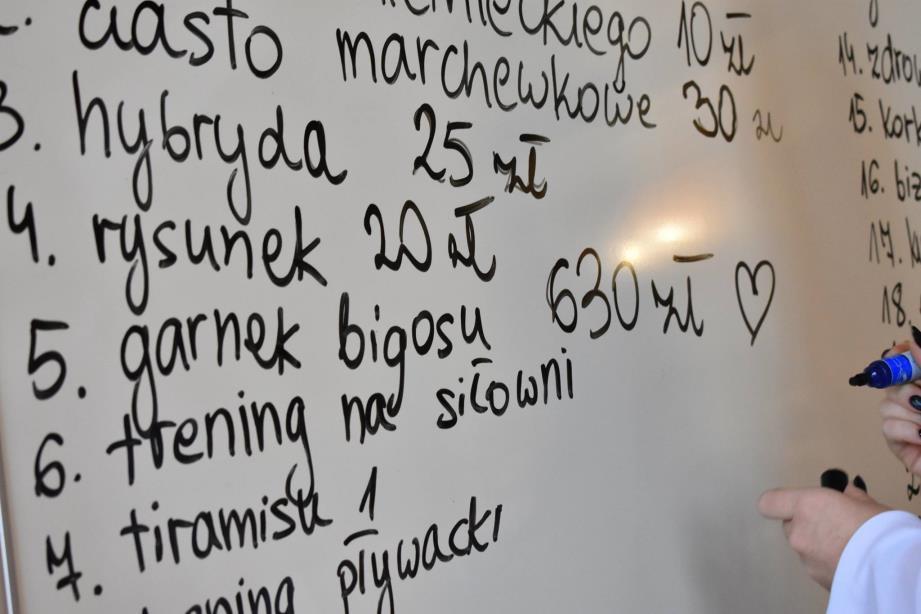 10 zł
ciasto marchewkowe 30 zł
3. hybryda 25 zł
4. rysunek 20 zł
5. garnek bigosu 630 zł ♡
6. trening na siłowni
7. tiramisu 1
trening pływacki
14.
15.
16.
17.
18.